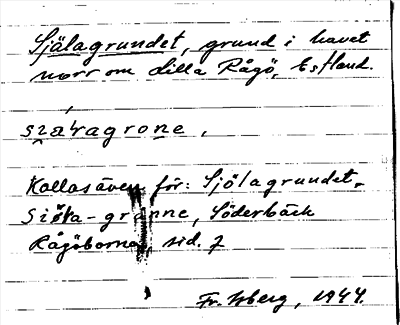 Själagrundet, grund i havet
norr om Lilla Rågö, Estland.
Kallas även för: Sjölagrundet.
Siöla-granne, Söderbäck
Rågöborna, sid. 7
Fr. Isberg, 1944.